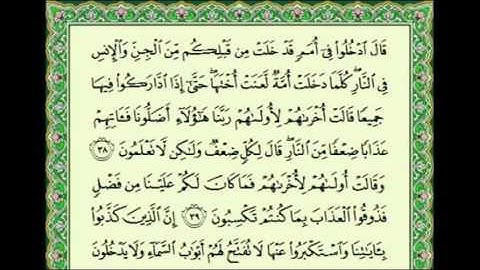 قَالَ ٱدْخُلُوا۟ فِىٓ أُمَمٍ قَدْ خَلَتْ مِن قَبْلِكُم مِّنَ ٱلْجِنِّ وَٱلْإِنسِ
فِى ٱلنَّارِ ۖ كُلَّمَا دَخَلَتْ أُمَّةٌ لَّعَنَتْ أُخْتَهَا ۖ حَتَّىٰٓ إِذَا ٱدَّارَكُوا۟ فِيهَا
جَمِيعًا قَالَتْ أُخْرَىٰهُمْ لِأُولَىٰهُمْ رَبَّنَا هَٰٓؤُلَآءِ أَضَلُّونَا فَـَٔاتِهِمْ
عَذَابًا ضِعْفًا مِّنَ ٱلنَّارِ ۖ قَالَ لِكُلٍّ ضِعْفٌ وَلَٰكِن لَّا تَعْلَمُونَ ٣٨
وَقَالَتْ أُولَىٰهُمْ لِأُخْرَىٰهُمْ فَمَا كَانَ لَكُمْ عَلَيْنَا مِن فَضْلٍ
فَذُوقُوا۟ ٱلْعَذَابَ بِمَا كُنتُمْ تَكْسِبُونَ ٣٩ إِنَّ ٱلَّذِينَ كَذَّبُوا۟
بِـَٔايَٰتِنَا وَٱسْتَكْبَرُوا۟ عَنْهَا لَا تُفَتَّحُ لَهُمْ أَبْوَٰبُ ٱلسَّمَآءِ وَلَا يَدْخُلُونَ